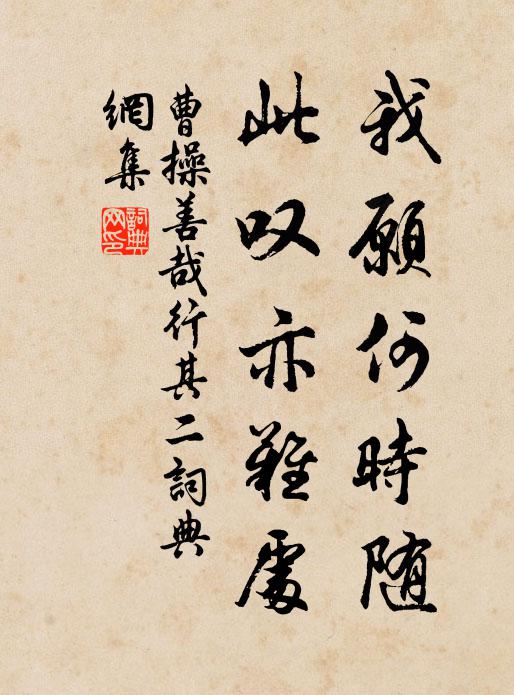 我願何時随
此叹亦難處
曹操善哉行其二詞典
網集
詞典
网印